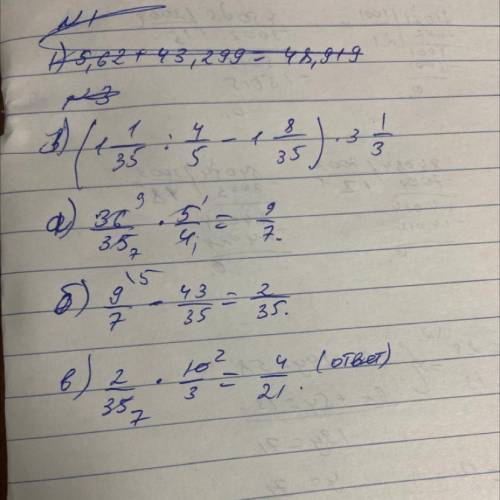 №1
1) 5,62 + 43,299 = 48,919
№3
в) (1 1/35 : 4/5 - 1 8/35) · 3 1/3
а) 36⁹/35₇ · 5¹/4₁ = 9/7.
б) 9\⁵/7 - 43/35 = 2/35.
в) 2/35₇ · 10²/3 = 4/21. (ответ)